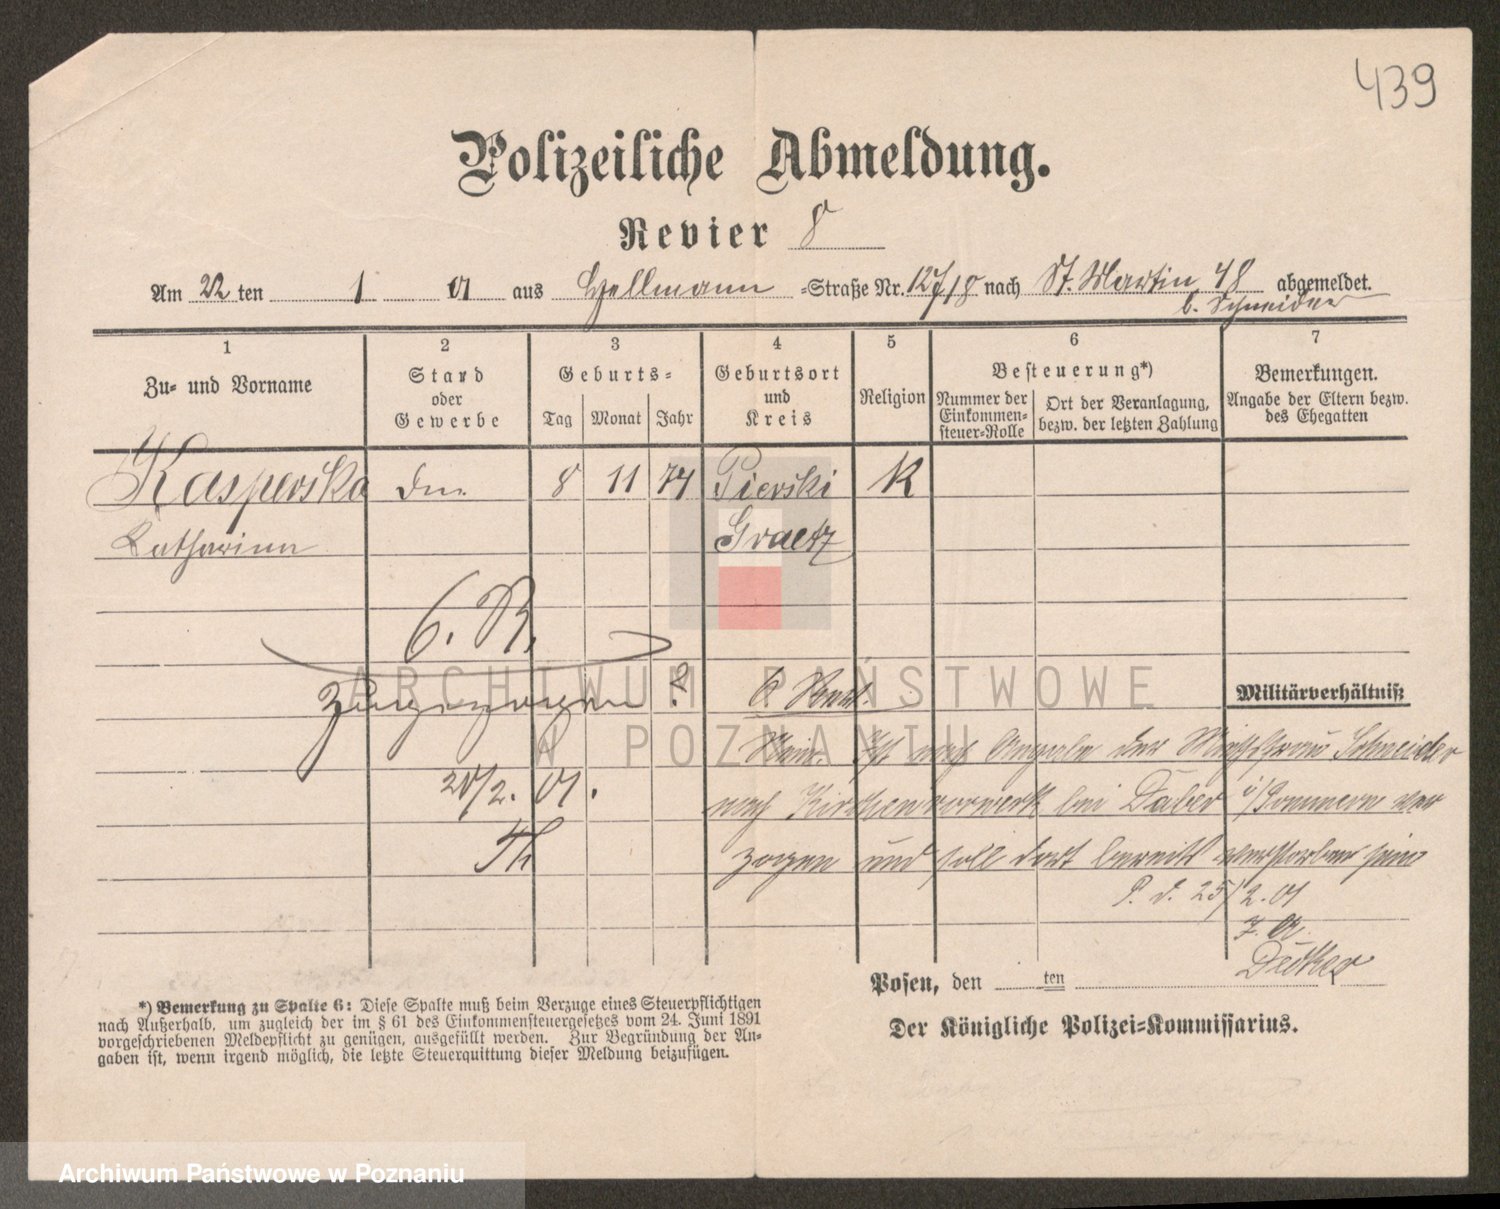 439
Polizeiliche Abmeldung.
Revier 8
Am 22 ten 1 01 aus Hellmann =Straße Nr. 127/18 nach St. Martin 48 abgemeldet.
b. Schneider
1 2 3 4 5 6 7
Zu= und Vorname
Stand oder Gewerbe
Geburts=
Tag Monat Jahr
Geburtsort und Kreis
Religion
Besteuerung*)
Nummer der Einkommen=steuer=Rolle
Ort der Veranlagung, bezw. der letzten Zahlung
Bemerkungen.
Angabe der Eltern bezw. des Ehegatten
Kasperska 8 11 74 Pierski K
Catharina Graetz
6. R.
zugezogen?
20/2. 01.
Th
Militärverhältniß
Nein. Ist nach Angabe der Wirthsfrau Schneider
nach Kirschenvorwerk bei Daber i/Pommern ver
zogen und soll dort bereits verstorben sein
P. d. 25/2. 01
Posen, den ten
Der Königliche Polizei=Kommissarius.
*) Bemerkung zu Spalte 6: Diese Spalte muß beim Verzuge eines Steuerpflichtigen
nach Außerhalb, um zugleich der im § 61 des Einkommensteuergesetzes vom 24. Juni 1891
vorgeschriebenen Meldepflicht zu genügen, ausgefüllt werden. Zur Begründung der An=
gaben ist, wenn irgend möglich, die letzte Steuerquittung dieser Meldung beizufügen.
ARCHIWUM PAŃSTWOWE
W POZNANIU
Archiwum Państwowe w Poznaniu